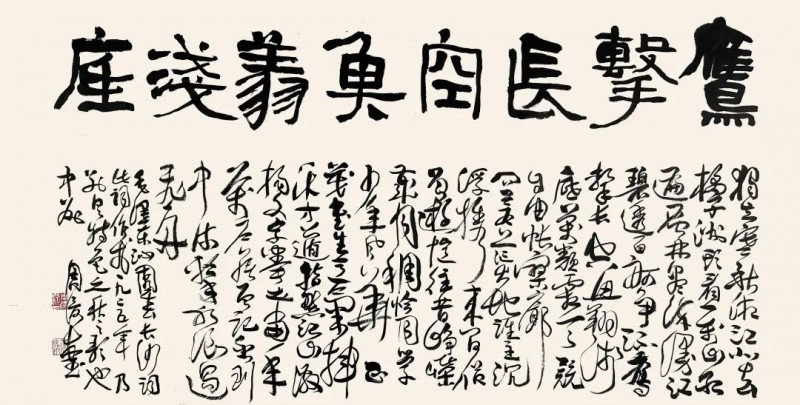 鷹擊長空魚翔淺底
獨立寒秋湘江北去
橘子洲頭看萬山紅
遍層林盡染漫江
碧透百舸爭流鷹
擊長空魚翔淺
底萬類霜天競
自由悵寥廓
問蒼茫大地誰主沉
浮攜來百侶
曾遊憶往昔崢嶸
歲月稠恰同學
少年風華正
茂書生意氣揮
斥方遒指點江山激
揚文字糞土當年
萬戶侯曾記否到
中流擊水浪遏
飛舟
毛澤東沁園春長沙詞
此詞作於一九二五年乃
特色之秋之歌也